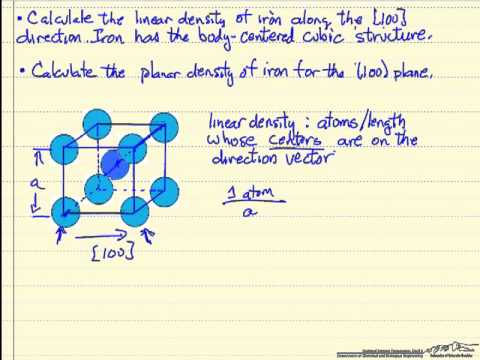 • Calculate the linear density of iron along the [100]
direction. Iron has the body-centered cubic structure.
• Calculate the planar density of iron for the (100) plane.
linear density : atoms/length
whose centers are on the
direction vector
1 atom
a
a
[100]
Department of Chemical and Biological Engineering